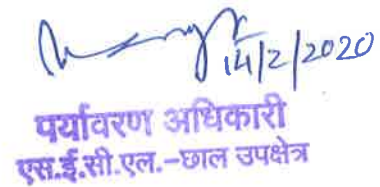 14/2/2020
पर्यावरण अधिकारी
एस.ई.सी.एल.-छाल उपक्षेत्र